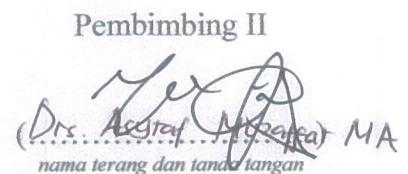 Pembimbing II
(Drs. Asyraf Muzaffar) MA
nama terang dan tanda tangan